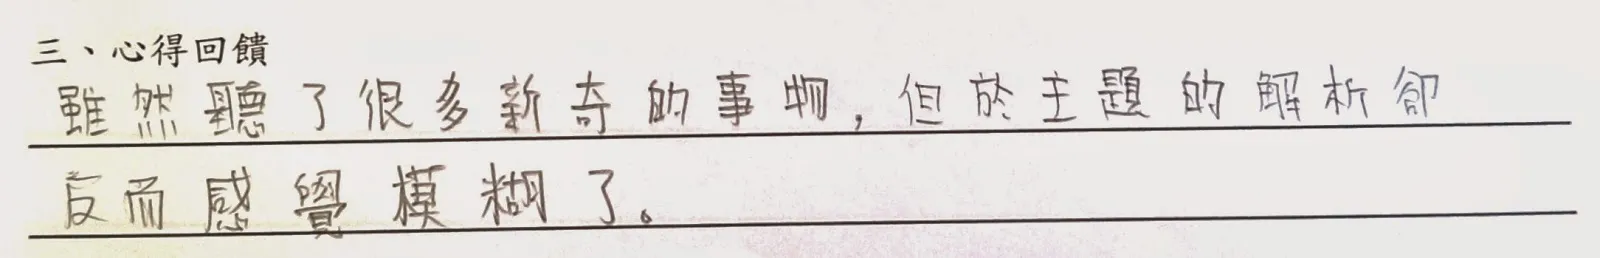 三、心得回饋
雖然聽了很多新奇的事物,但於主題的解析卻
反而感覺模糊了。